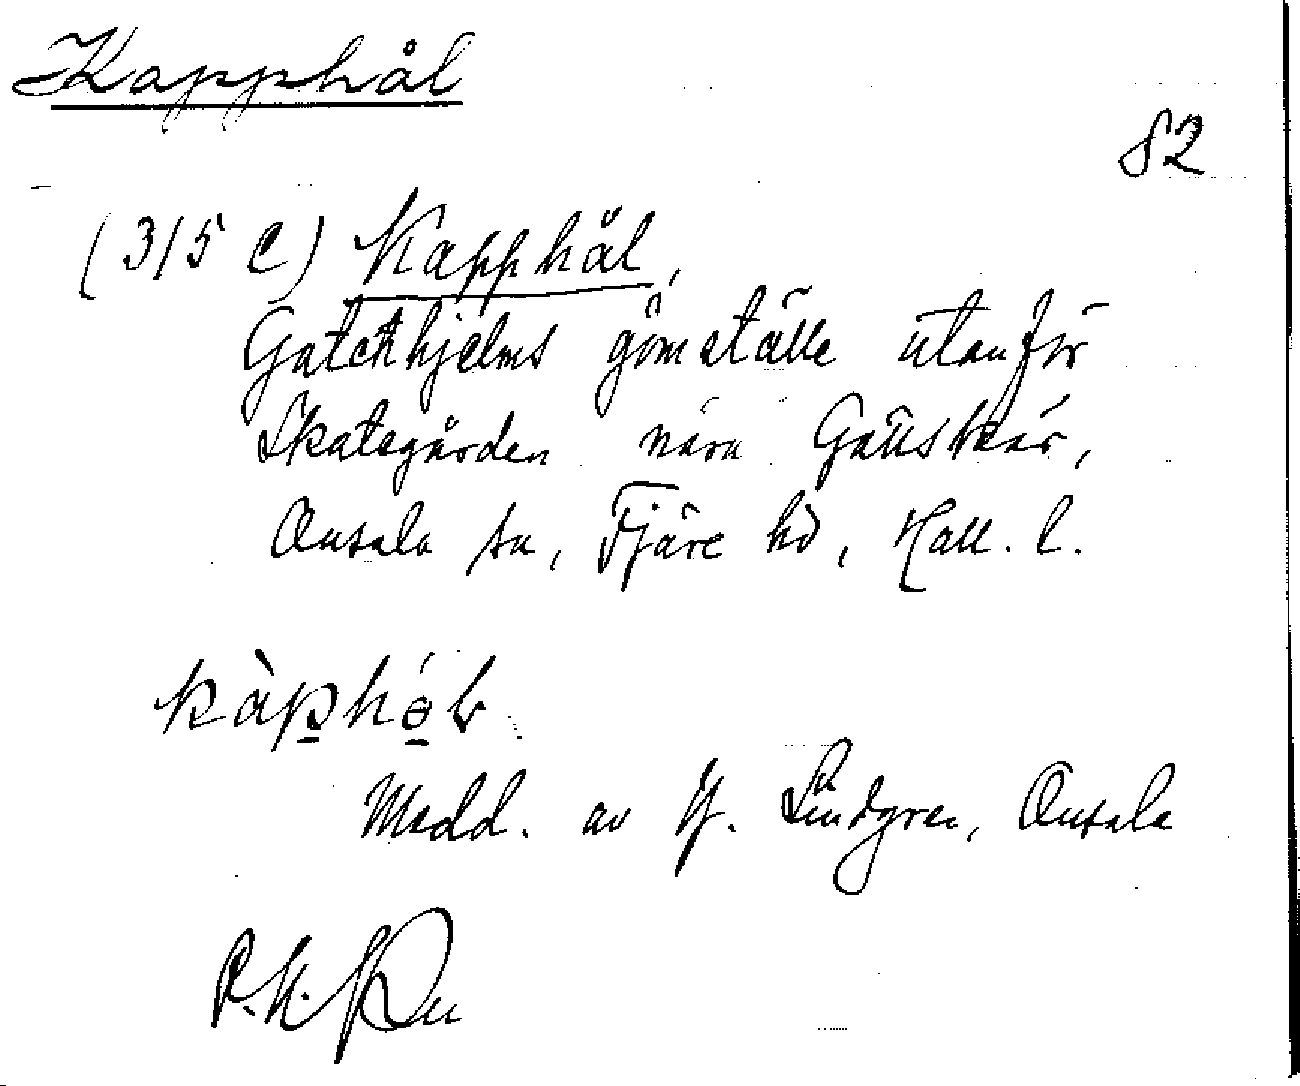 Kapphål
82
(315 C) Kapphål,
Gatenhjelms gömställe utanför
Skategården nära Gåsskär,
Onsala sn, Fjäre hd, Hall. l.
Medd. av Lindgren, Onsala